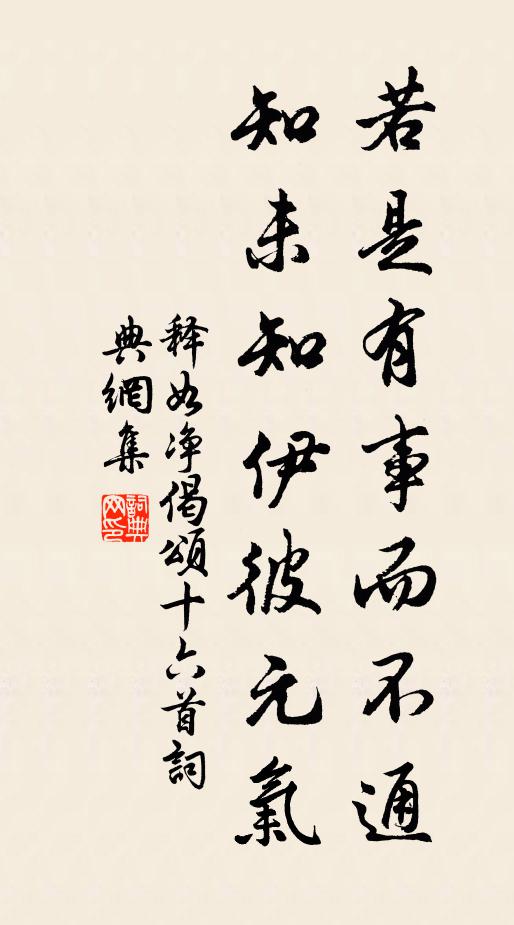 若是有事而不通
知未知伊彼元氣
释如净偈頌十六首詞
典網集
詞典网印